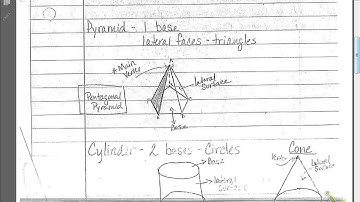 Pyramid - 1 base
lateral faces - triangles
* Main
Vertex
lateral
Surface
Pentagonal
Pyramid
Base
Cylinder - 2 bases - Circles
Cone
Base
lateral
Surface
lateral